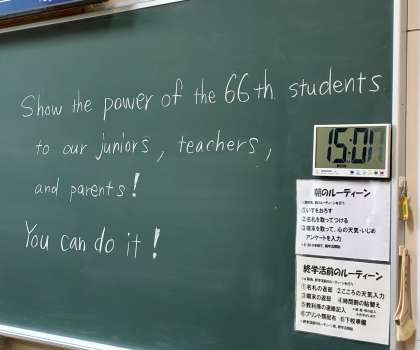 Show the power of the 66th students
to our juniors, teachers,
and parents!
You can do it!
15:01
朝のルーティーン
①いすをおろす
②名札を取ってつける
③端末を取って、心の天気・いじめ
アンケートを入力
終学活前のルーティーン
①名札の返却 ②こころの天気入力
③端末の返却 ④時間割の貼替え
⑤教科係の連絡記入
⑥プリント類配布 ⑥下校準備